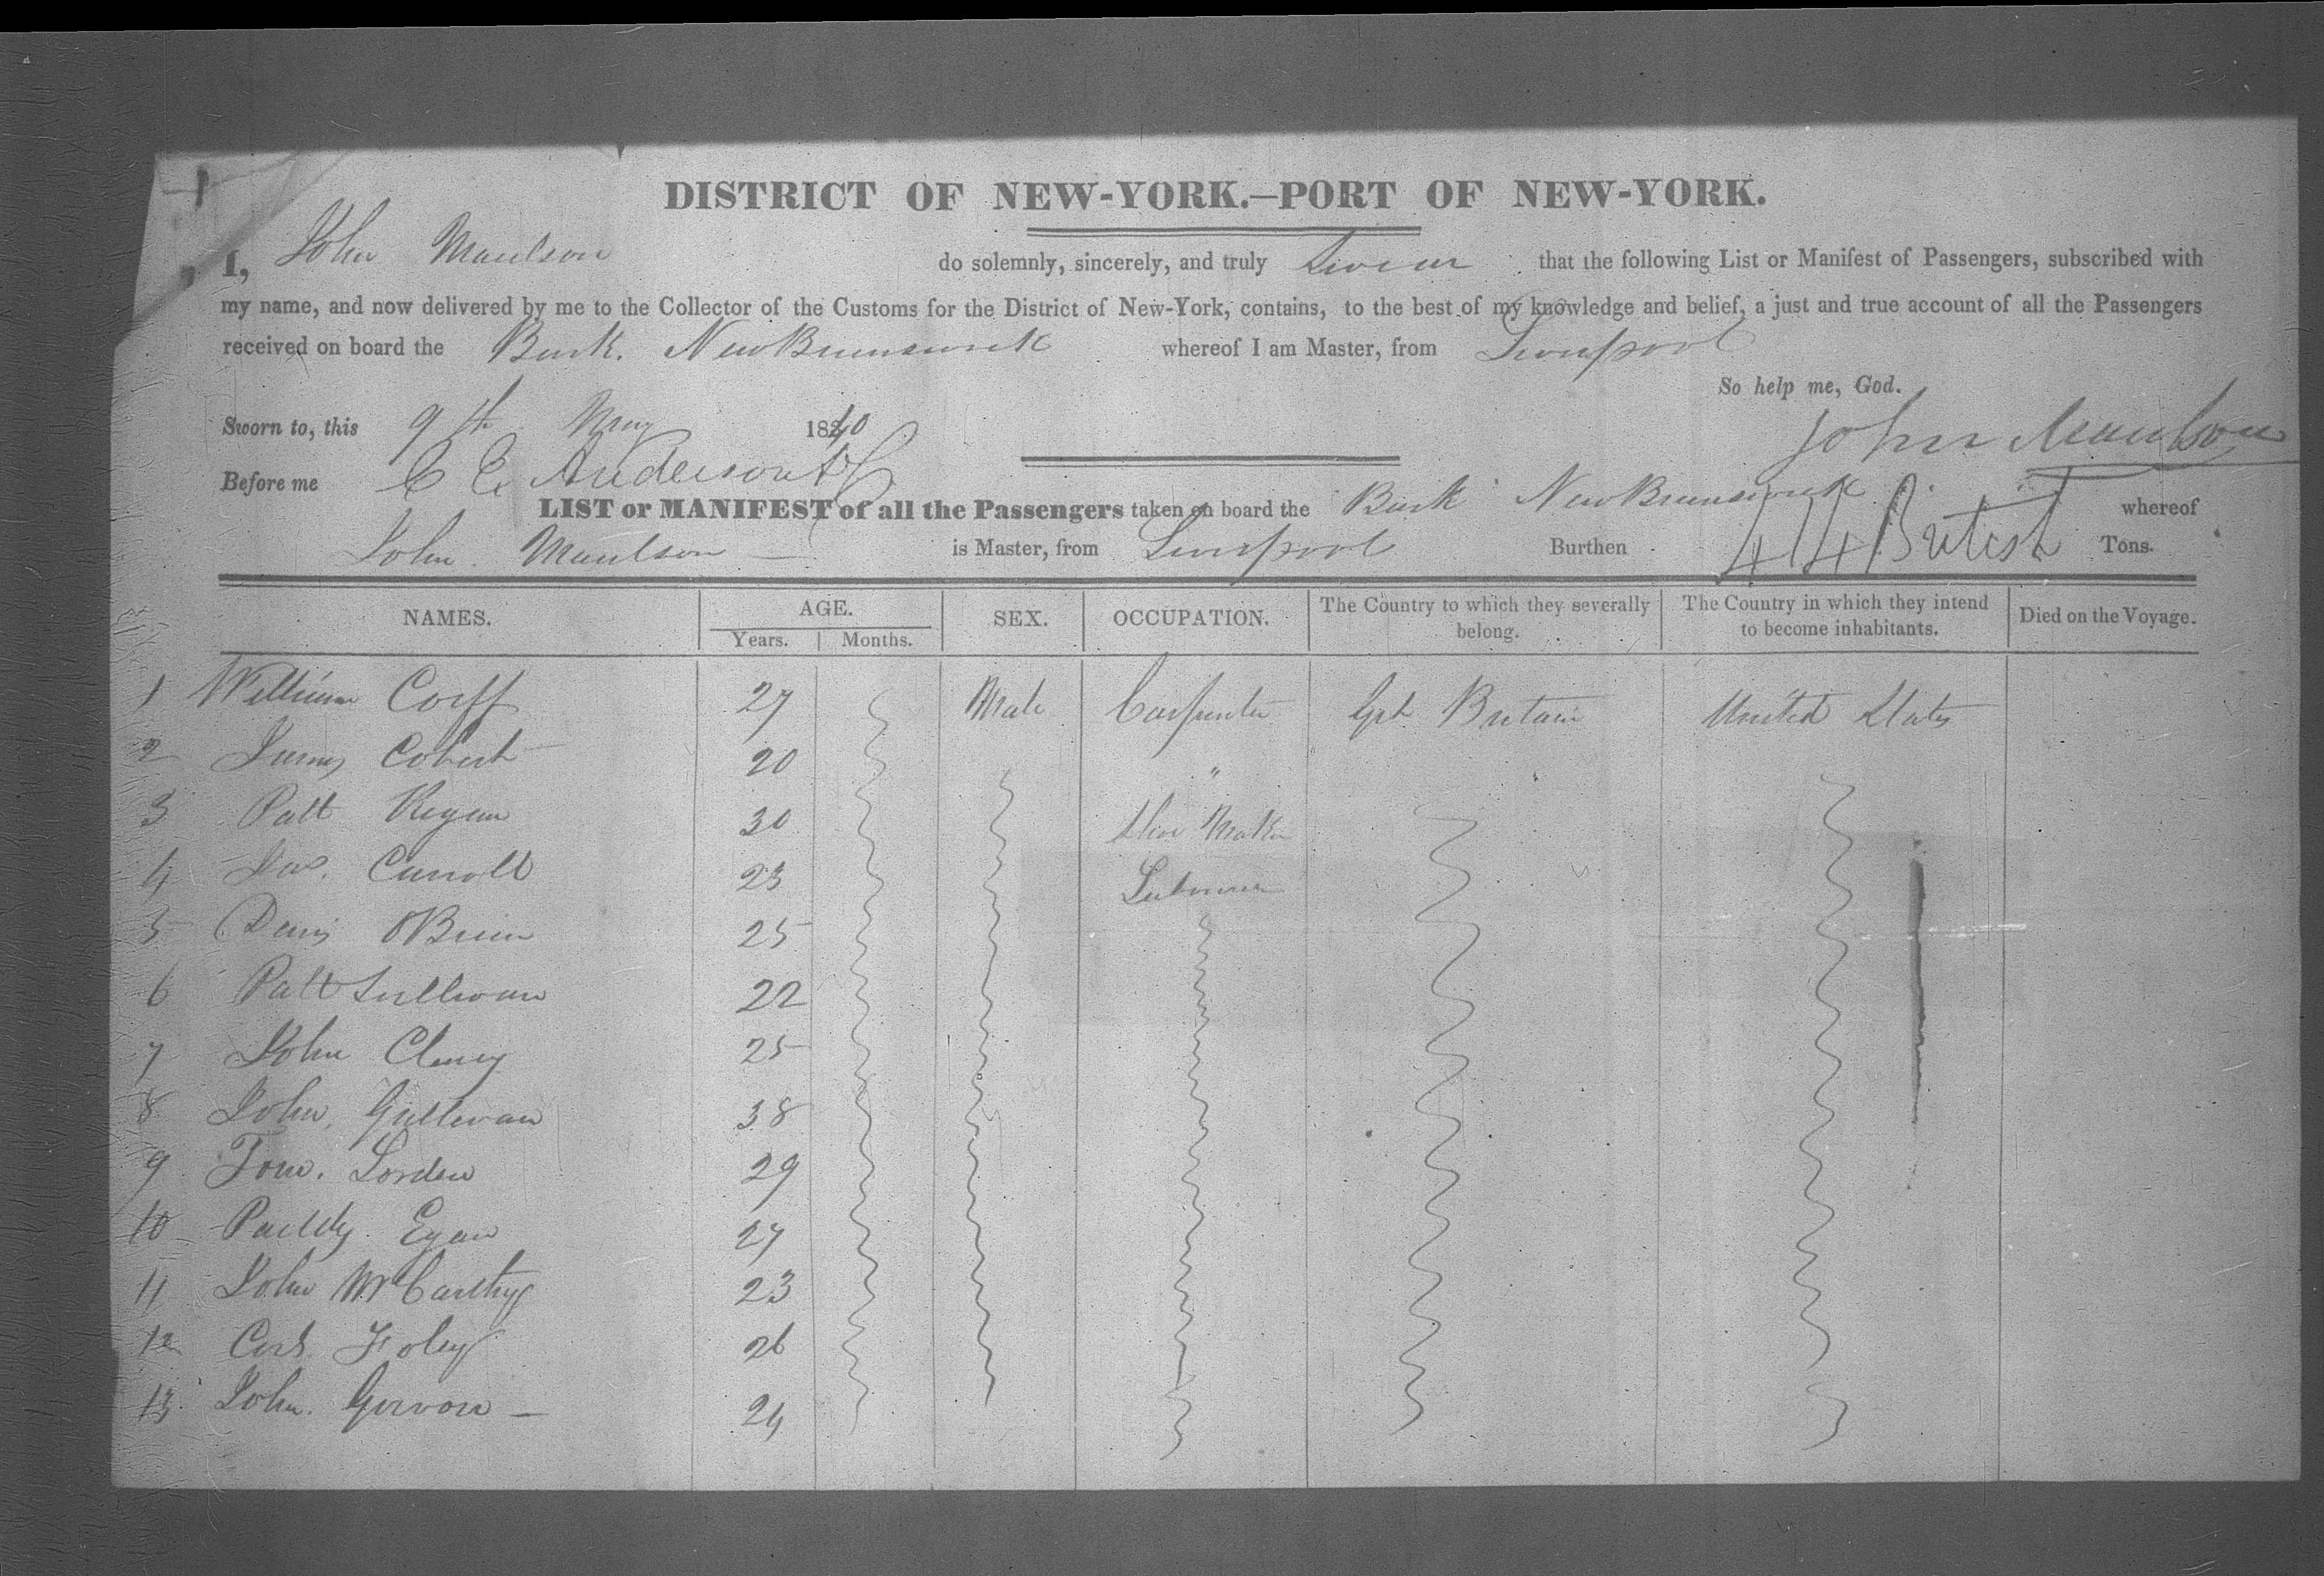 DISTRICT OF NEW-YORK.—PORT OF NEW-YORK.
I, John Maulson do solemnly, sincerely, and truly Swear that the following List or Manifest of Passengers, subscribed with
my name, and now delivered by me to the Collector of the Customs for the District of New-York, contains, to the best of my knowledge and belief, a just and true account of all the Passengers
received on board the Bark. New Brunswick whereof I am Master, from Liverpool
So help me, God.
Sworn to, this 9th May 1840 John Maulson
Before me C E Anderson
LIST or MANIFEST of all the Passengers taken on board the Bark New Brunswick whereof
John Maulson is Master, from Liverpool Burthen 414 British Tons.
NAMES. AGE. SEX. OCCUPATION. The Country to which they severally belong. The Country in which they intend to become inhabitants. Died on the Voyage.
Years. Months.
1 William Corff 27 Male Carpenter Grt Britain United States
2 James 20 "
3 Patt Regan 30 Shoe Maker
4 Jas. Carroll 23 Labourer
5 Denis OBrien 25
6 Patt Sullivan 22
7 John Clancy 25
8 John, Gullivan 38
9 Tom. Lorden 29
10 Paddy Egan 27
11 John McCarthy 23
12 Foley 26
13 John. 24